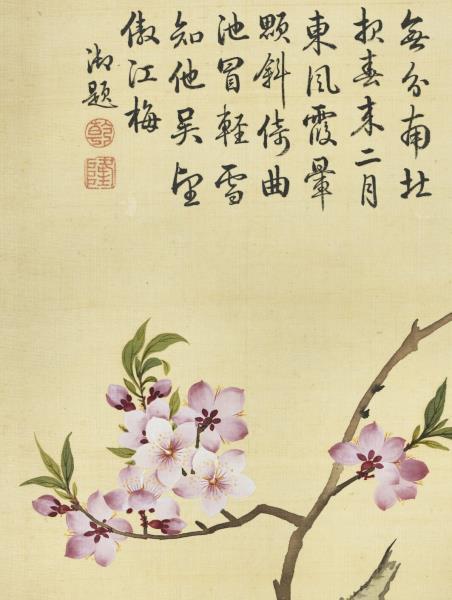 無分南北
報春来二月
東風霞暈
顋斜倚曲
池冒輕雪
知他吴
傲江梅
御題
乾
隆